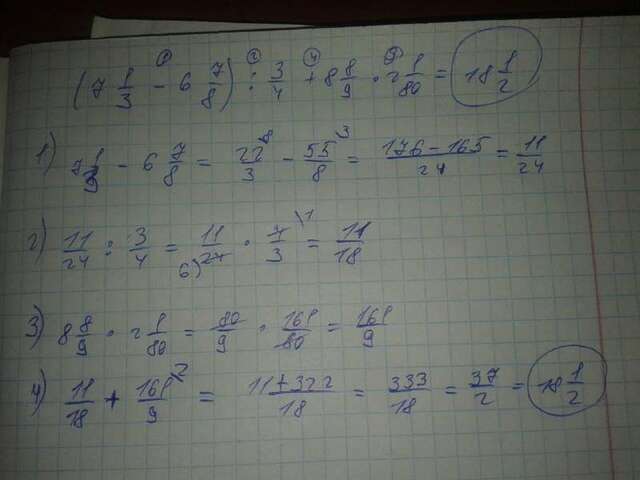 (7 1/3 - 6 7/8) : 3/4 + 8 8/9 · 2 1/80 = 18 1/2
1) 7 1/3 - 6 7/8 = 22/3 - 55/8 = 176-165/24 = 11/24
2) 11/24 : 3/4 = 11/24 · 4/3 = 11/18
3) 8 8/9 · 2 1/80 = 80/9 · 161/80 = 161/9
4) 11/18 + 161/9 = 11+322/18 = 333/18 = 37/2 = 18 1/2